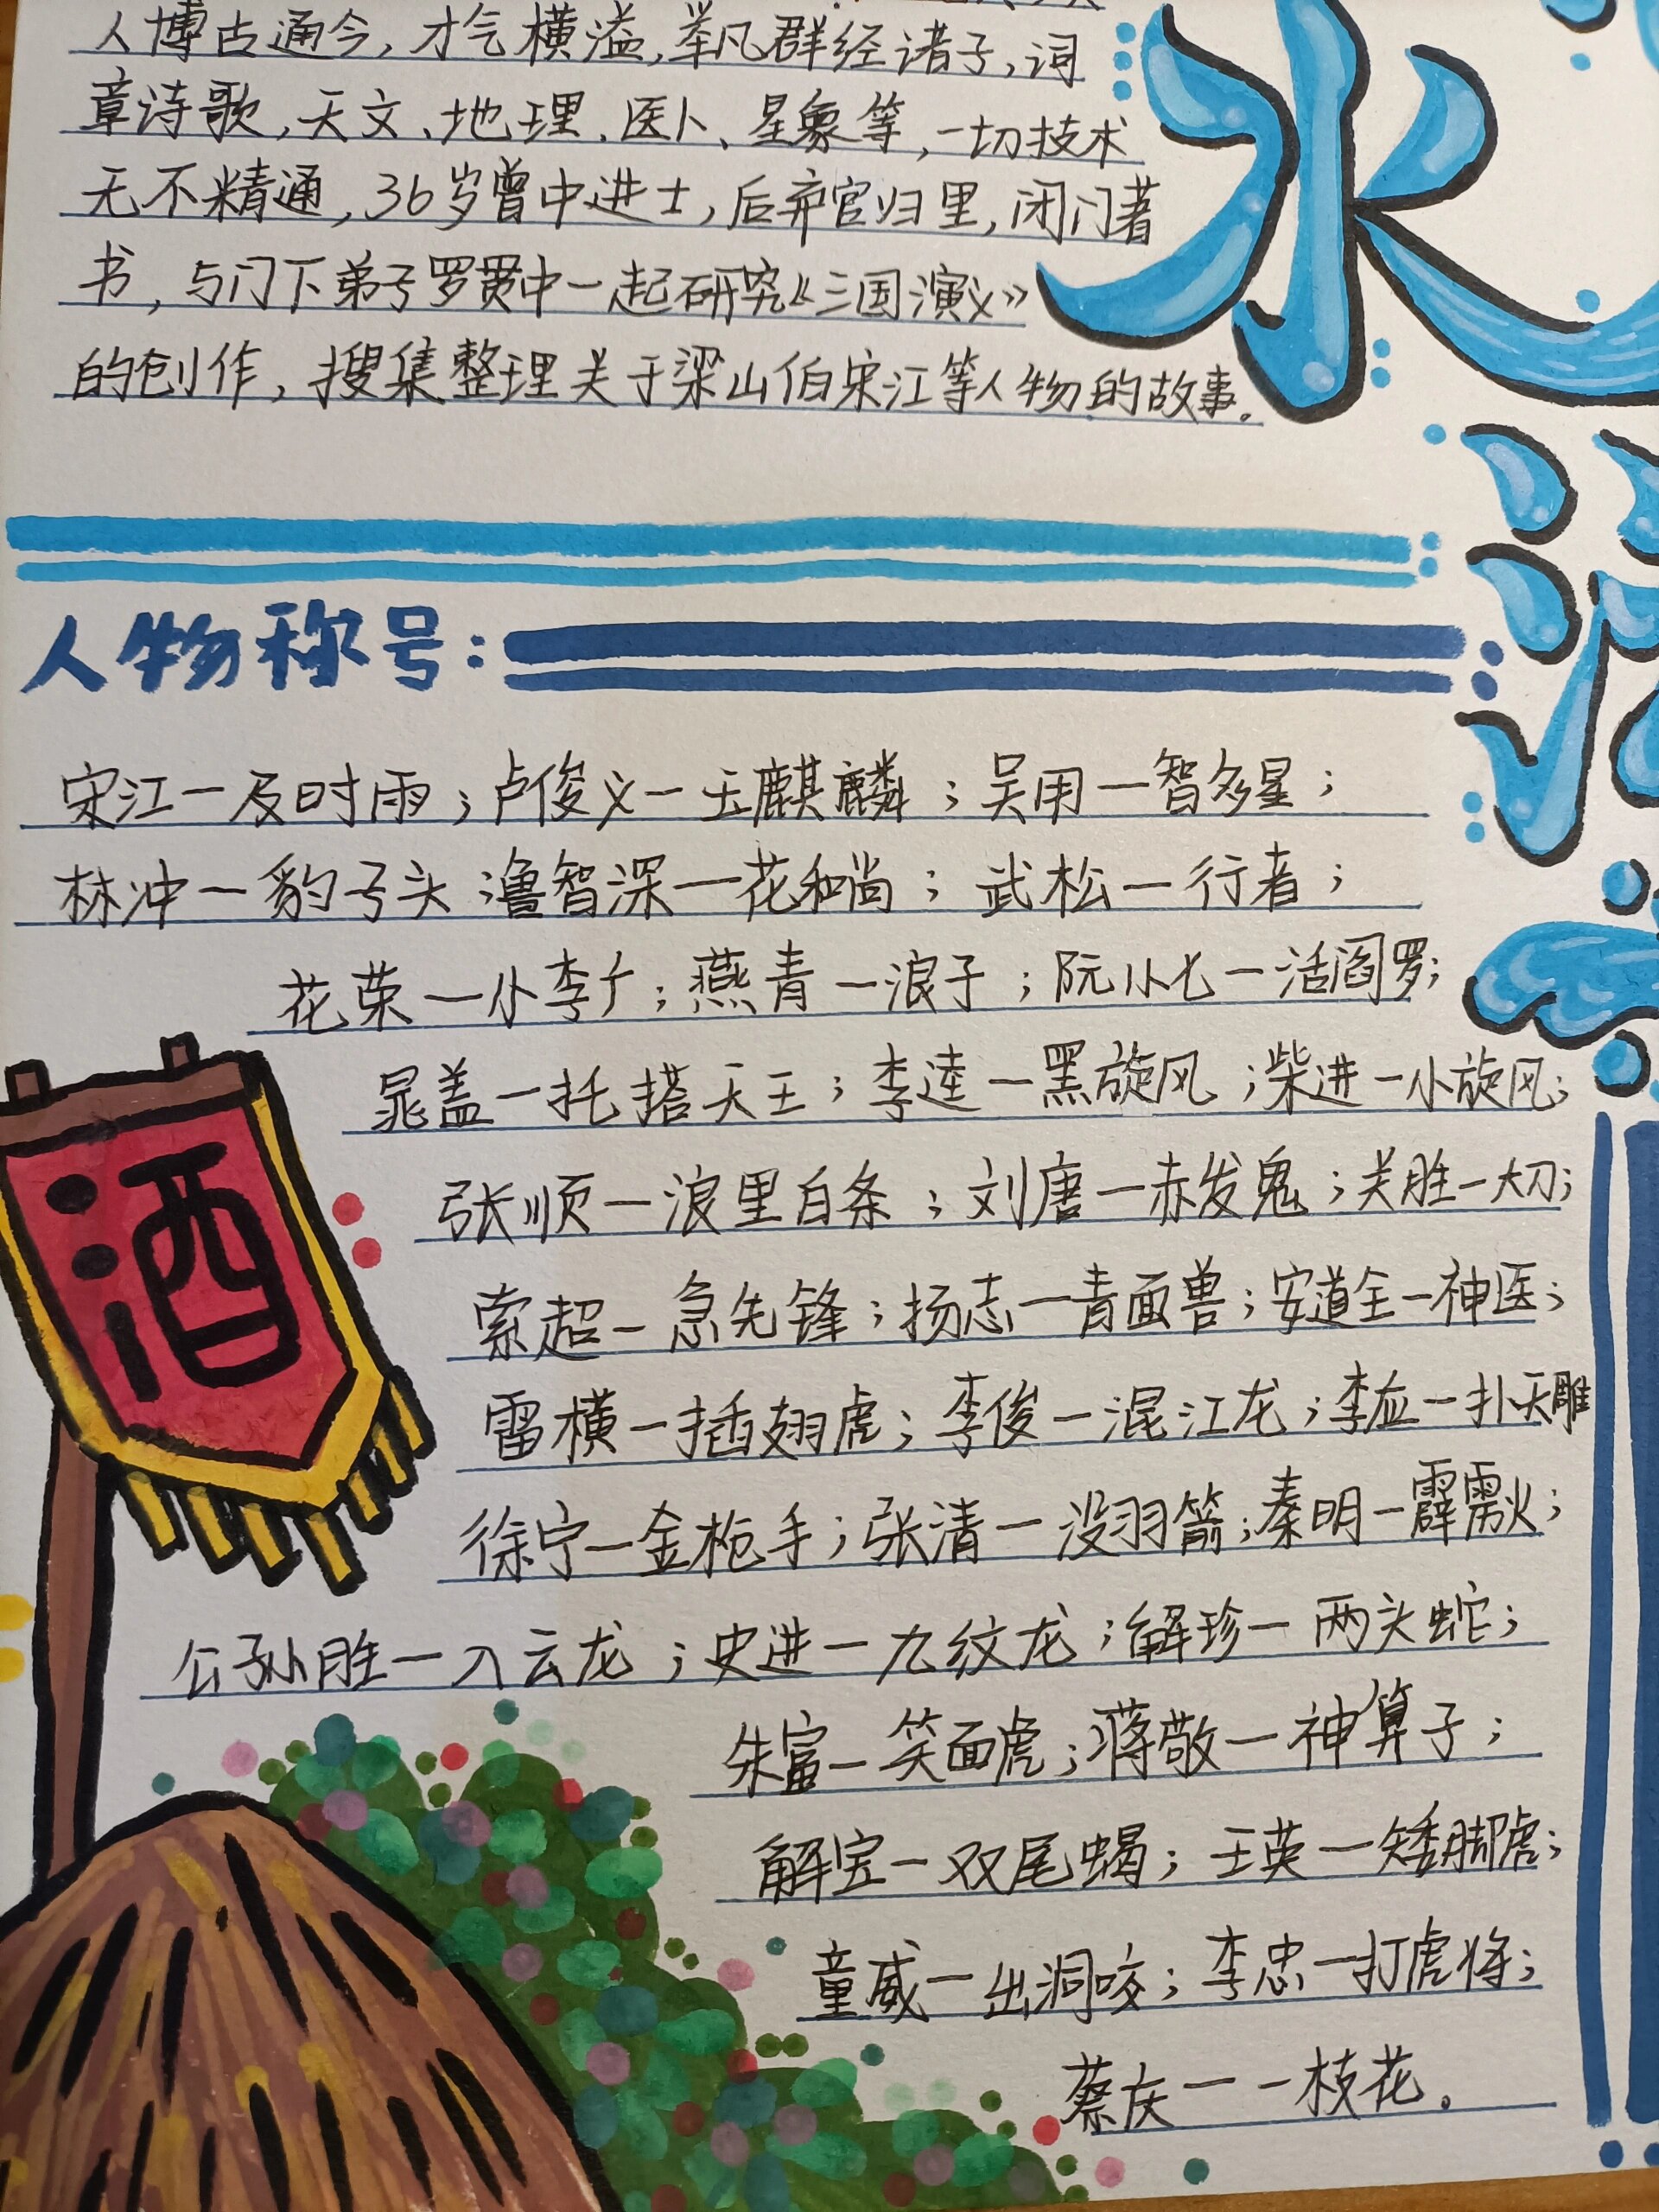 人博古通今,才气横溢,举凡群经诸子,词
章诗歌,天文、地理、医卜、星象等,一切技术
无不精通,36岁曾中进士,后弃官归里,闭门著
书,与门下弟子罗贯中一起研究《三国演义》
的创作,搜集整理关于梁山伯宋江等人物的故事。
水
浒
人物称号:
宋江一及时雨;卢俊义一玉麒麟;吴用一智多星;
林冲一豹子头;鲁智深一花和尚;武松一行者;
花荣一小李广;燕青一浪子;阮小七一活阎罗;
晁盖一托搭天王;李逵一黑旋风;柴进一小旋风;
张顺一浪里白条;刘唐一赤发鬼;关胜一大刀;
索超一急先锋;扬志一青面兽;安道全一神医;
雷横一插翅虎;李俊一混江龙;李应一扑天雕
徐宁一金枪手;张清一没羽箭;秦明一霹雳火;
公孙胜一入云龙;史进一九纹龙;解珍一两头蛇;
朱富一笑面虎;蒋敬一神算子;
解宝一双尾蝎;王英一矮脚虎;
童威一出洞咬;李忠一打虎将;
蔡庆一一枝花。
酒